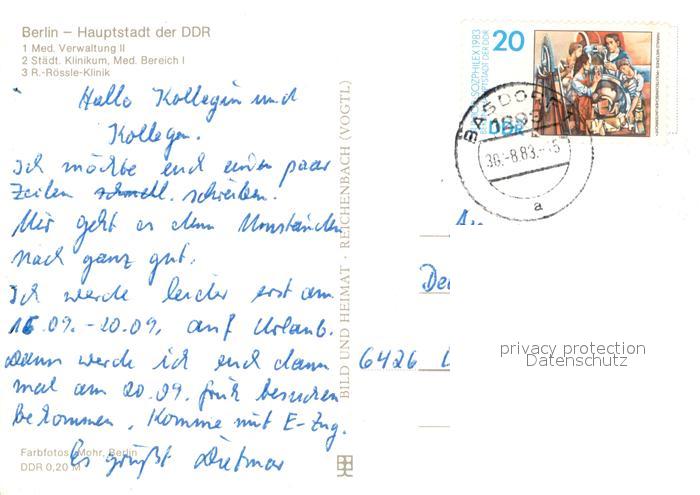 Berlin – Hauptstadt der DDR
1 Med. Verwaltung II
2 Städt. Klinikum, Med. Bereich I
3 R.-Rössle-Klinik
Hallo Kollegin und
Kollegen.
Ich möchte euch einen paar
Zeilen schnell schreiben.
Mir geht es den Umständen
nach ganz gut.
Ich werde leider erst am
16.09.-20.09. auf Urlaub.
Dann werde ich euch dann
mal am 20.09. früh besuchen
bekommen. Komme mit E-Zug.
Es grüßt Dietmar
Farbfotos: Mohr, Berlin
DDR 0,20 M
BILD UND HEIMAT · REICHENBACH (VOGTL)
SOZPHILEX 1983
HAUPTSTADT DER DDR
20
DDR
BASDORF
30.-8.83.-15
a
6426
privacy protection
Datenschutz